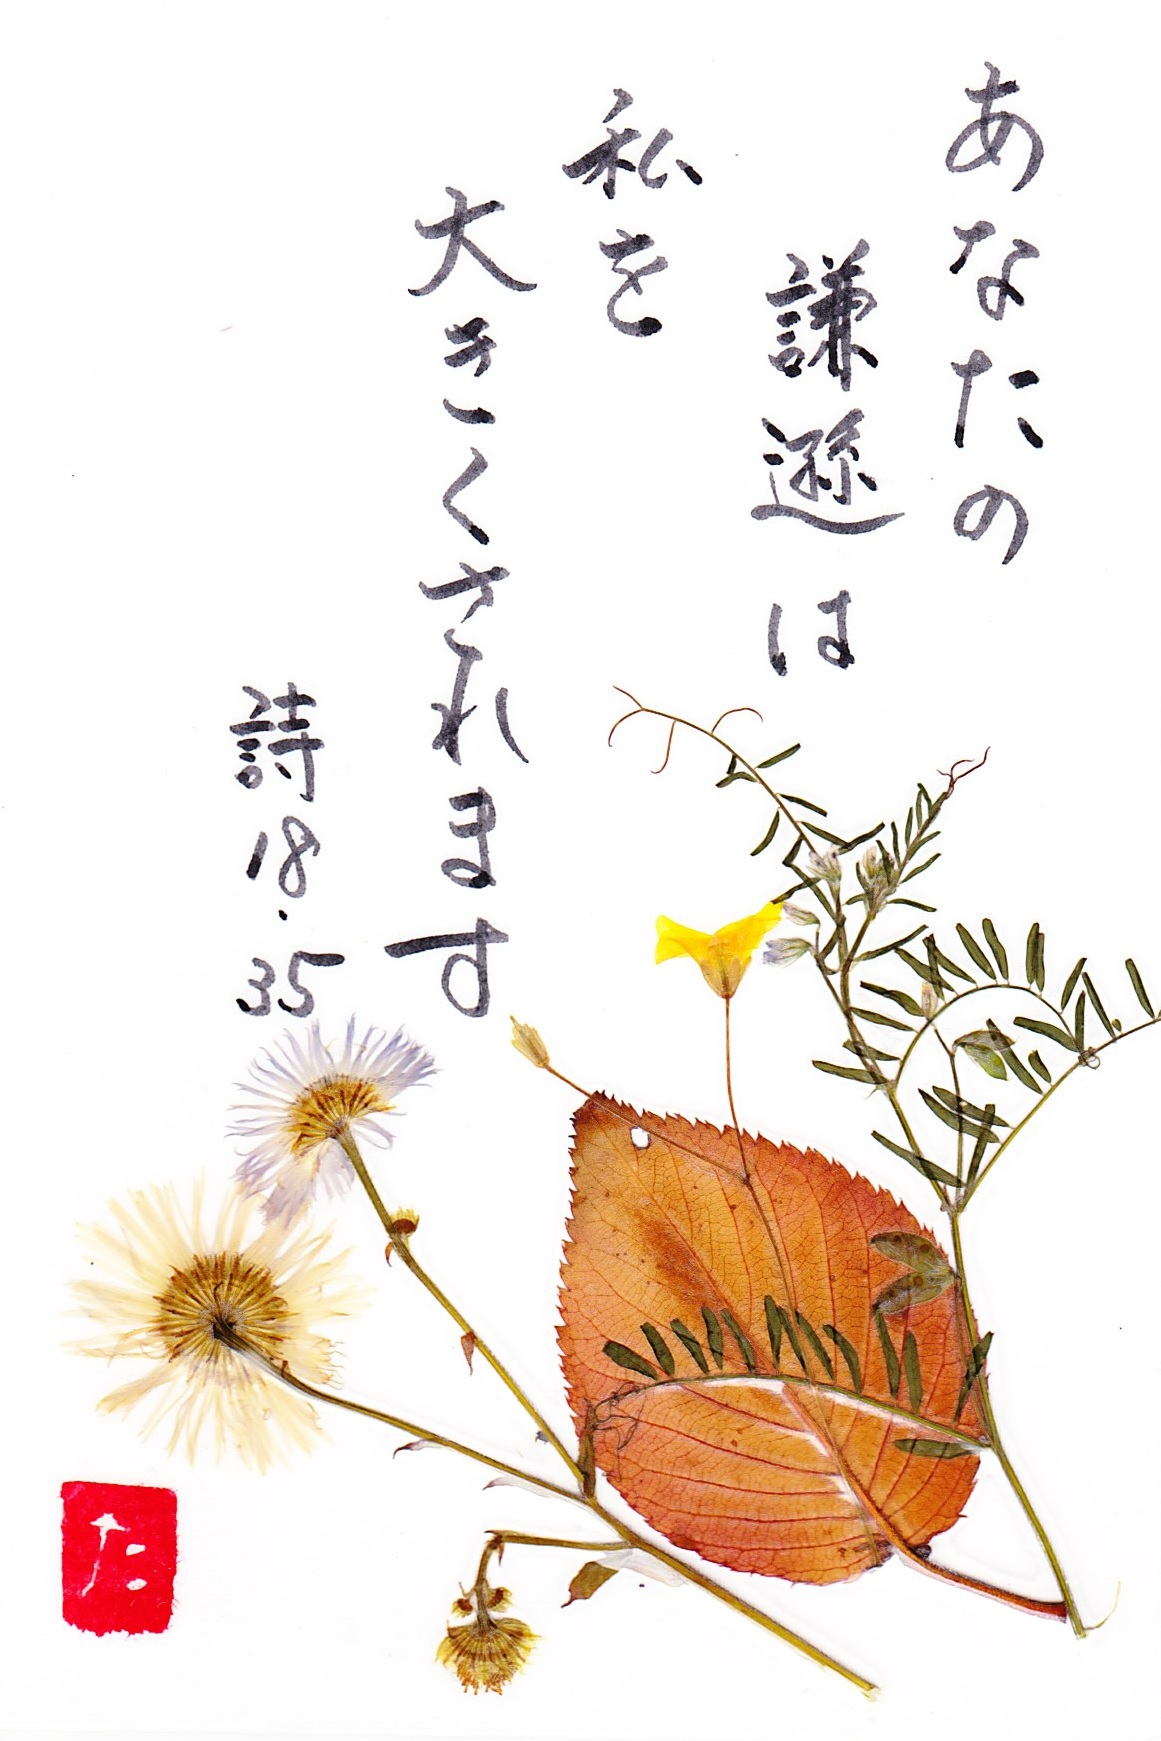 あなたの
謙遜は
私を
大きくされます
詩18.35
た